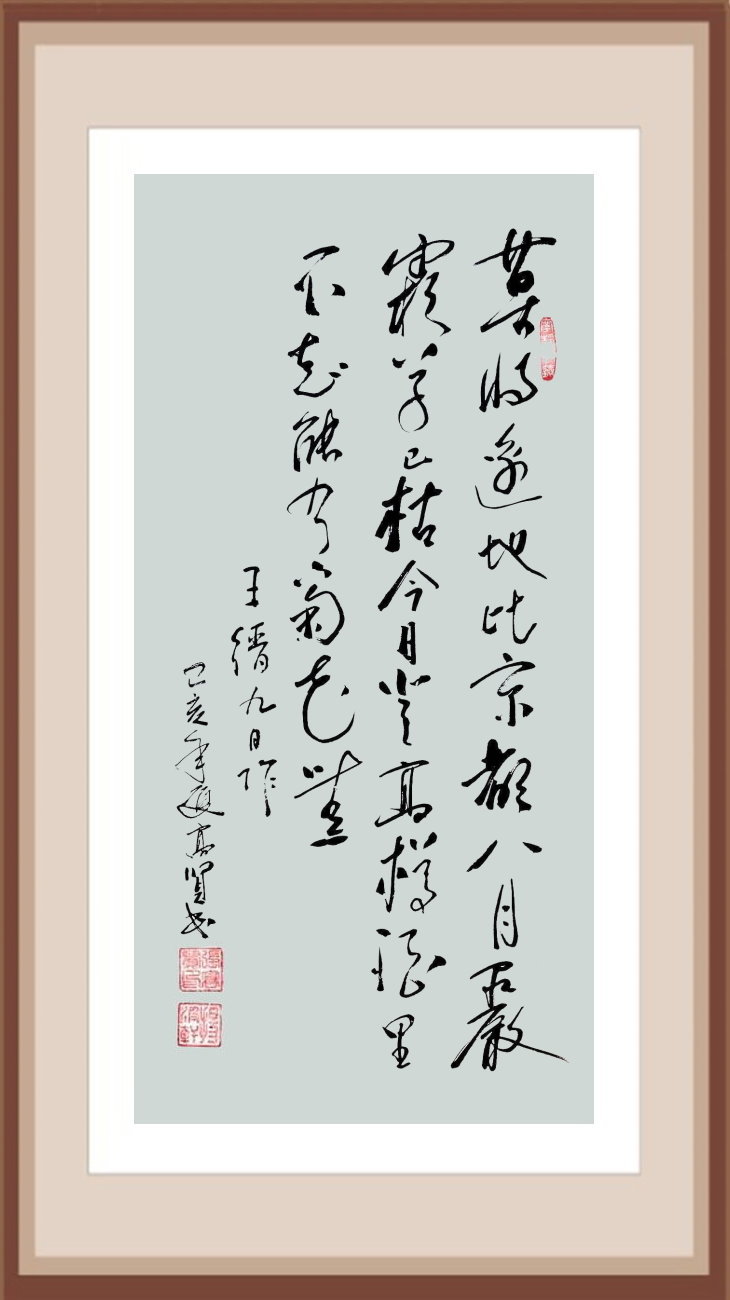 莫將邊地比京都八月嚴
霜草已枯今日登高樽酒里
不知能有菊花無
王縉九日作
己亥年夏高賢书